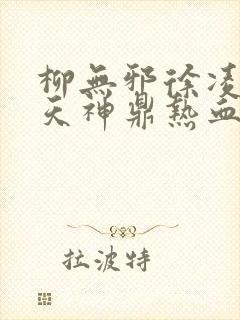 柳無邪徐凌
天神鼎熱血
拉波特